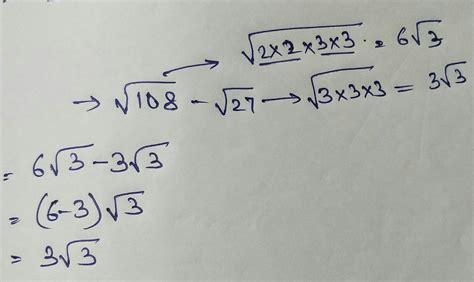 √2×2×3×3 = 6√3
→ √108 - √27 → √3×3×3 = 3√3
= 6√3 - 3√3
= (6-3)√3
= 3√3